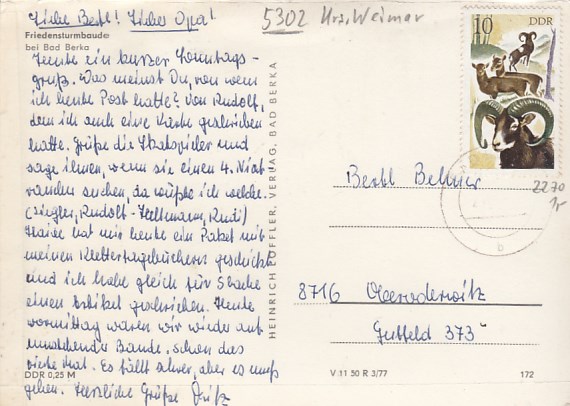 Liebe Bertl! Lieber Opa!
5302 Krs. Weimar
10 DDR
Friedensturmbaude
bei Bad Berka
Heute ein kurzer Sonntags-
gruß. Was meinst Du, von wem
ich heute Post hatte? Von Rudolf,
dem ich auch eine Karte geschrieben
hatte. Grüße die Skatspieler und
sage ihnen, wenn sie einen 4.
suchen, da wüßte ich welche.
(Ziegler, Rudolf, Rudi)
hat mir heute ein Paket mit
meinen Klettertagebüchern geschickt
und ich habe gleich für
einen Artikel geschrieben. Heute
vormittag waren wir wieder auf
Baude, schon das
vierte Mal. Es fällt schwer, aber es muß
gehen. Herzliche Grüße Fritz
HEINRICH LÖFFLER, VERLAG, BAD BERKA
Bertl Bellner
2270
8716 Oberoderwitz
Gutfeld 373
DDR 0,25 M
V 11 50 R 3/77
172